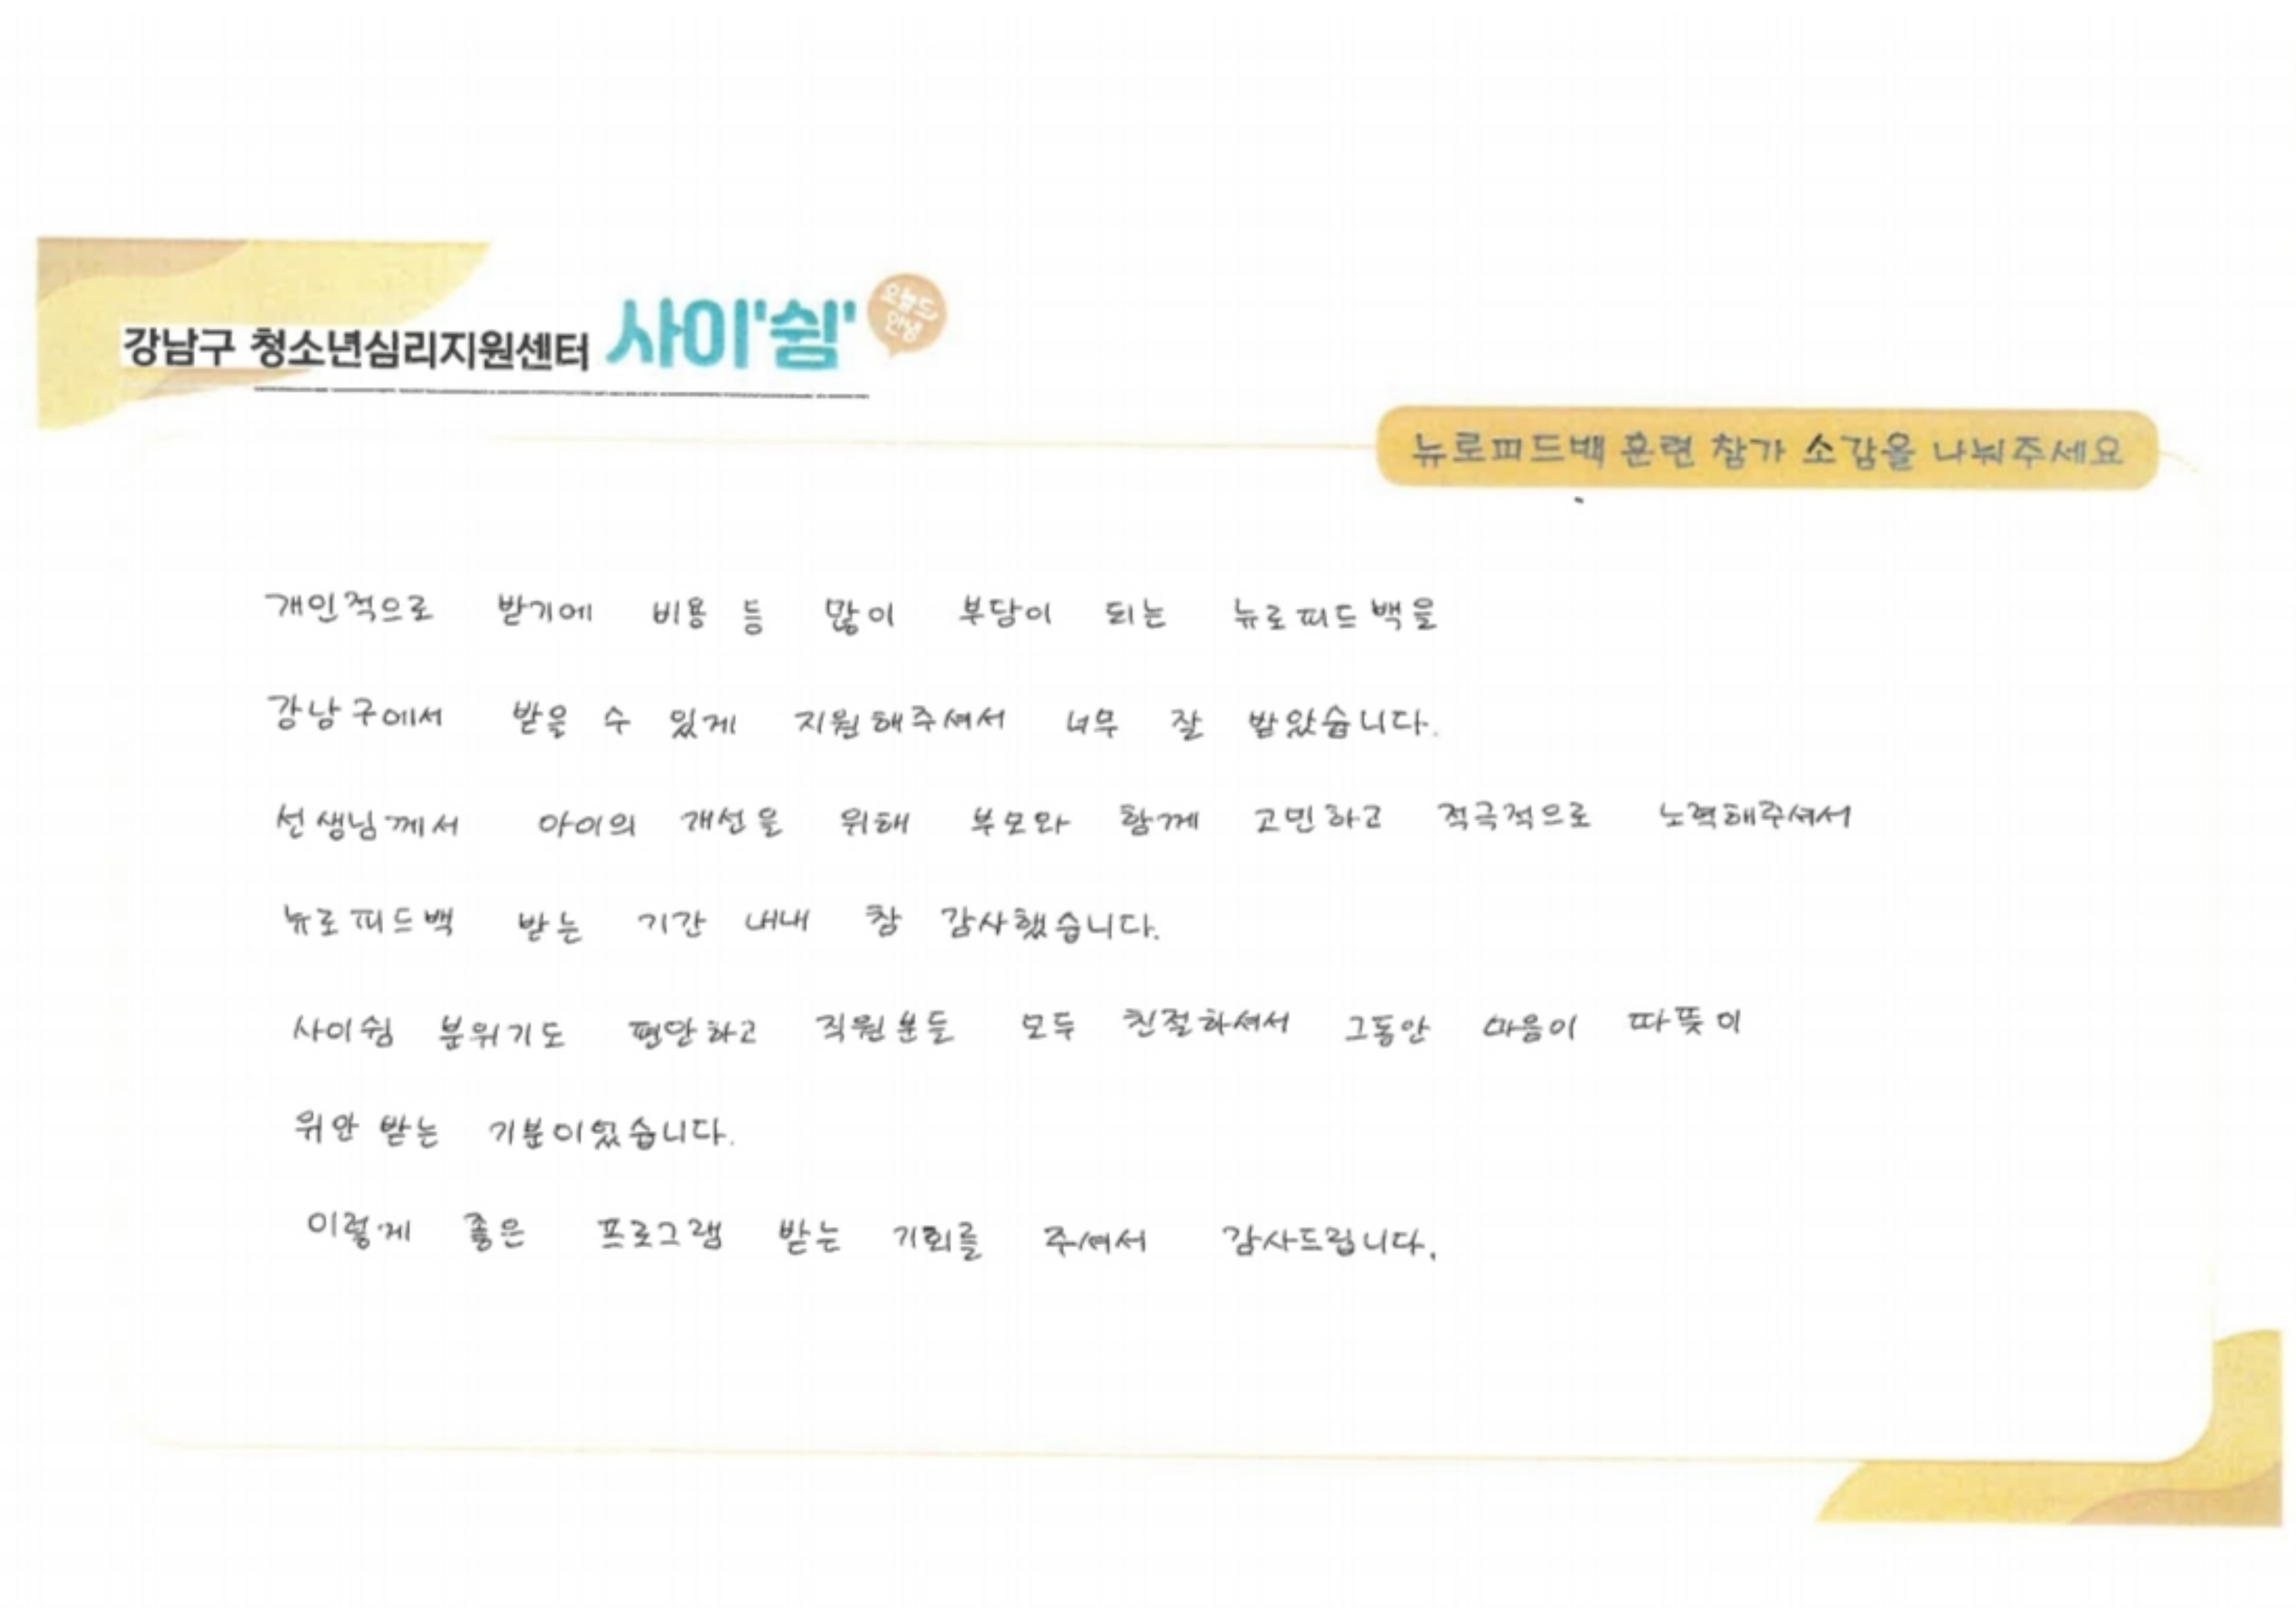 강남구 청소년심리지원센터 사이'쉼'
오늘도
안녕
뉴로피드백 훈련 참가 소감을 나눠주세요
개인적으로 받기에 비용 등 많이 부담이 되는 뉴로피드백을
강남구에서 받을 수 있게 지원해주셔서 너무 잘 받았습니다.
선생님께서 아이의 개선을 위해 부모와 함께 고민하고 적극적으로 노력해주셔서
뉴로피드백 받는 기간 내내 참 감사했습니다.
사이쉼 분위기도 편안하고 직원분들 모두 친절하셔서 그동안 마음이 따뜻이
위안 받는 기분이었습니다.
이렇게 좋은 프로그램 받는 기회를 주셔서 감사드립니다.